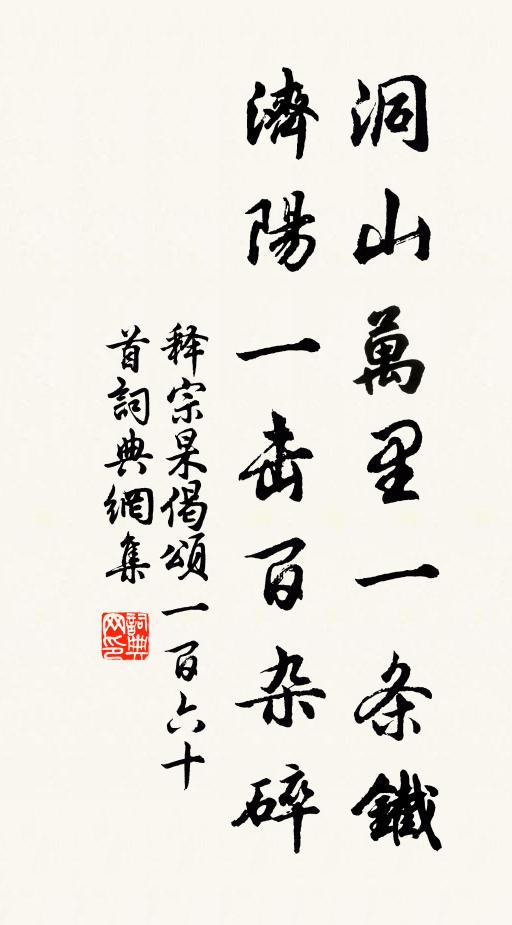 洞山萬里一条鐵
濟陽一击百杂碎
释宗杲偈頌一百六十
首詞典網集
詞典
网印